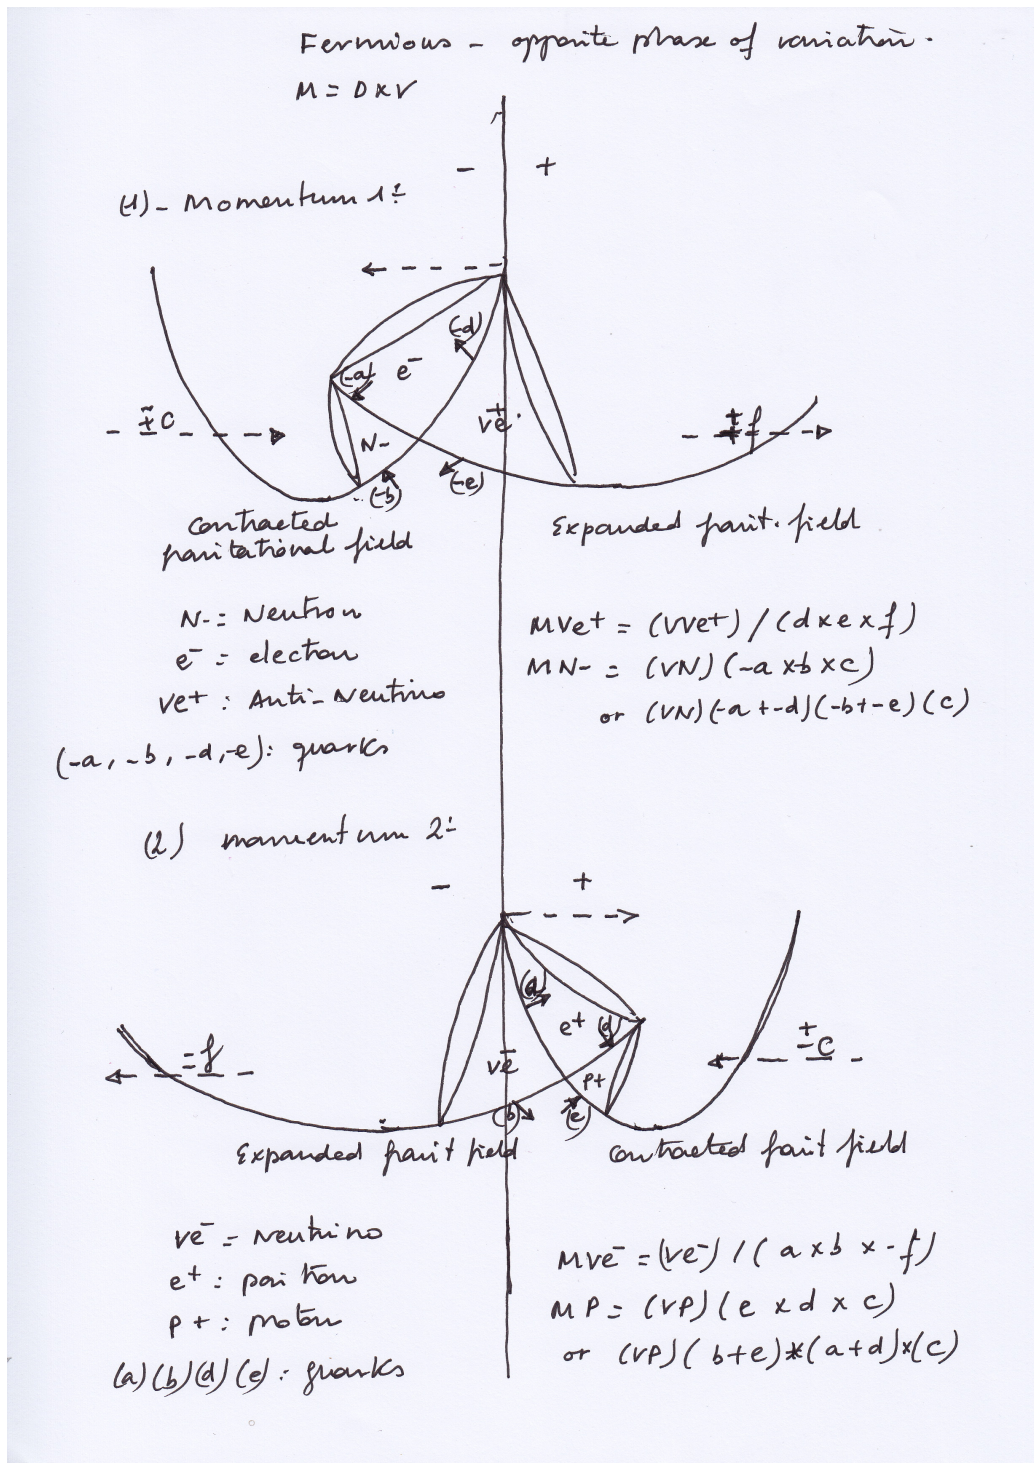 Fermions - opposite phase of variation.
M = D x V
- +
(1) - Momentum 1:
(-d)
(-a) e-
± c
ve+
± f
N-
(-b) (-e)
Contracted gravitational field
Expanded gravit. field
N- = Neutron
e- = electron
ve+ : Anti-Neutrino
(-a, -b, -d, -e): quarks
MVe+ = (VVe+) / (d x e x f)
MN- = (VN) (-a x b x c)
or (VN) (-a + -d) (-b + -e) (c)
(2) momentum 2:
- +
(a)
e+ (d)
- f
ve-
± c
P+
(b) (e)
Expanded gravit field
Contracted gravit field
ve- = Neutrino
e+ : positron
P+ : proton
(a) (b) (d) (e) : quarks
MVe- = (ve-) / (a x b x -f)
MP = (VP) (e x d x c)
or (VP) (b+e) * (a+d) x (c)